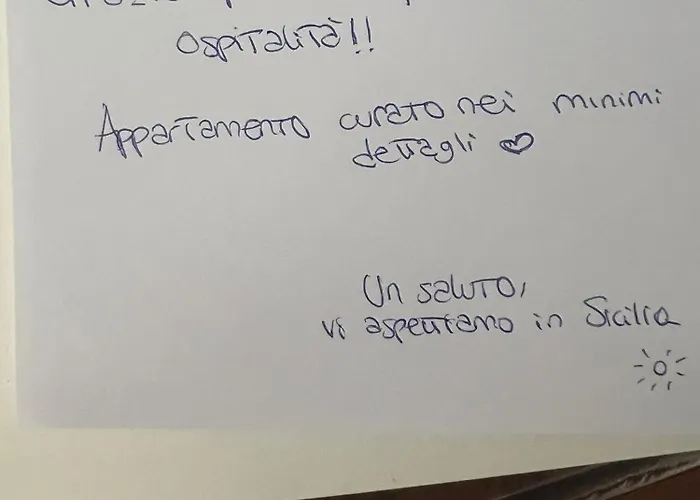 ospitalità!!
Appartamento curato nei minimi
dettagli
Un saluto,
vi aspettiamo in Sicilia